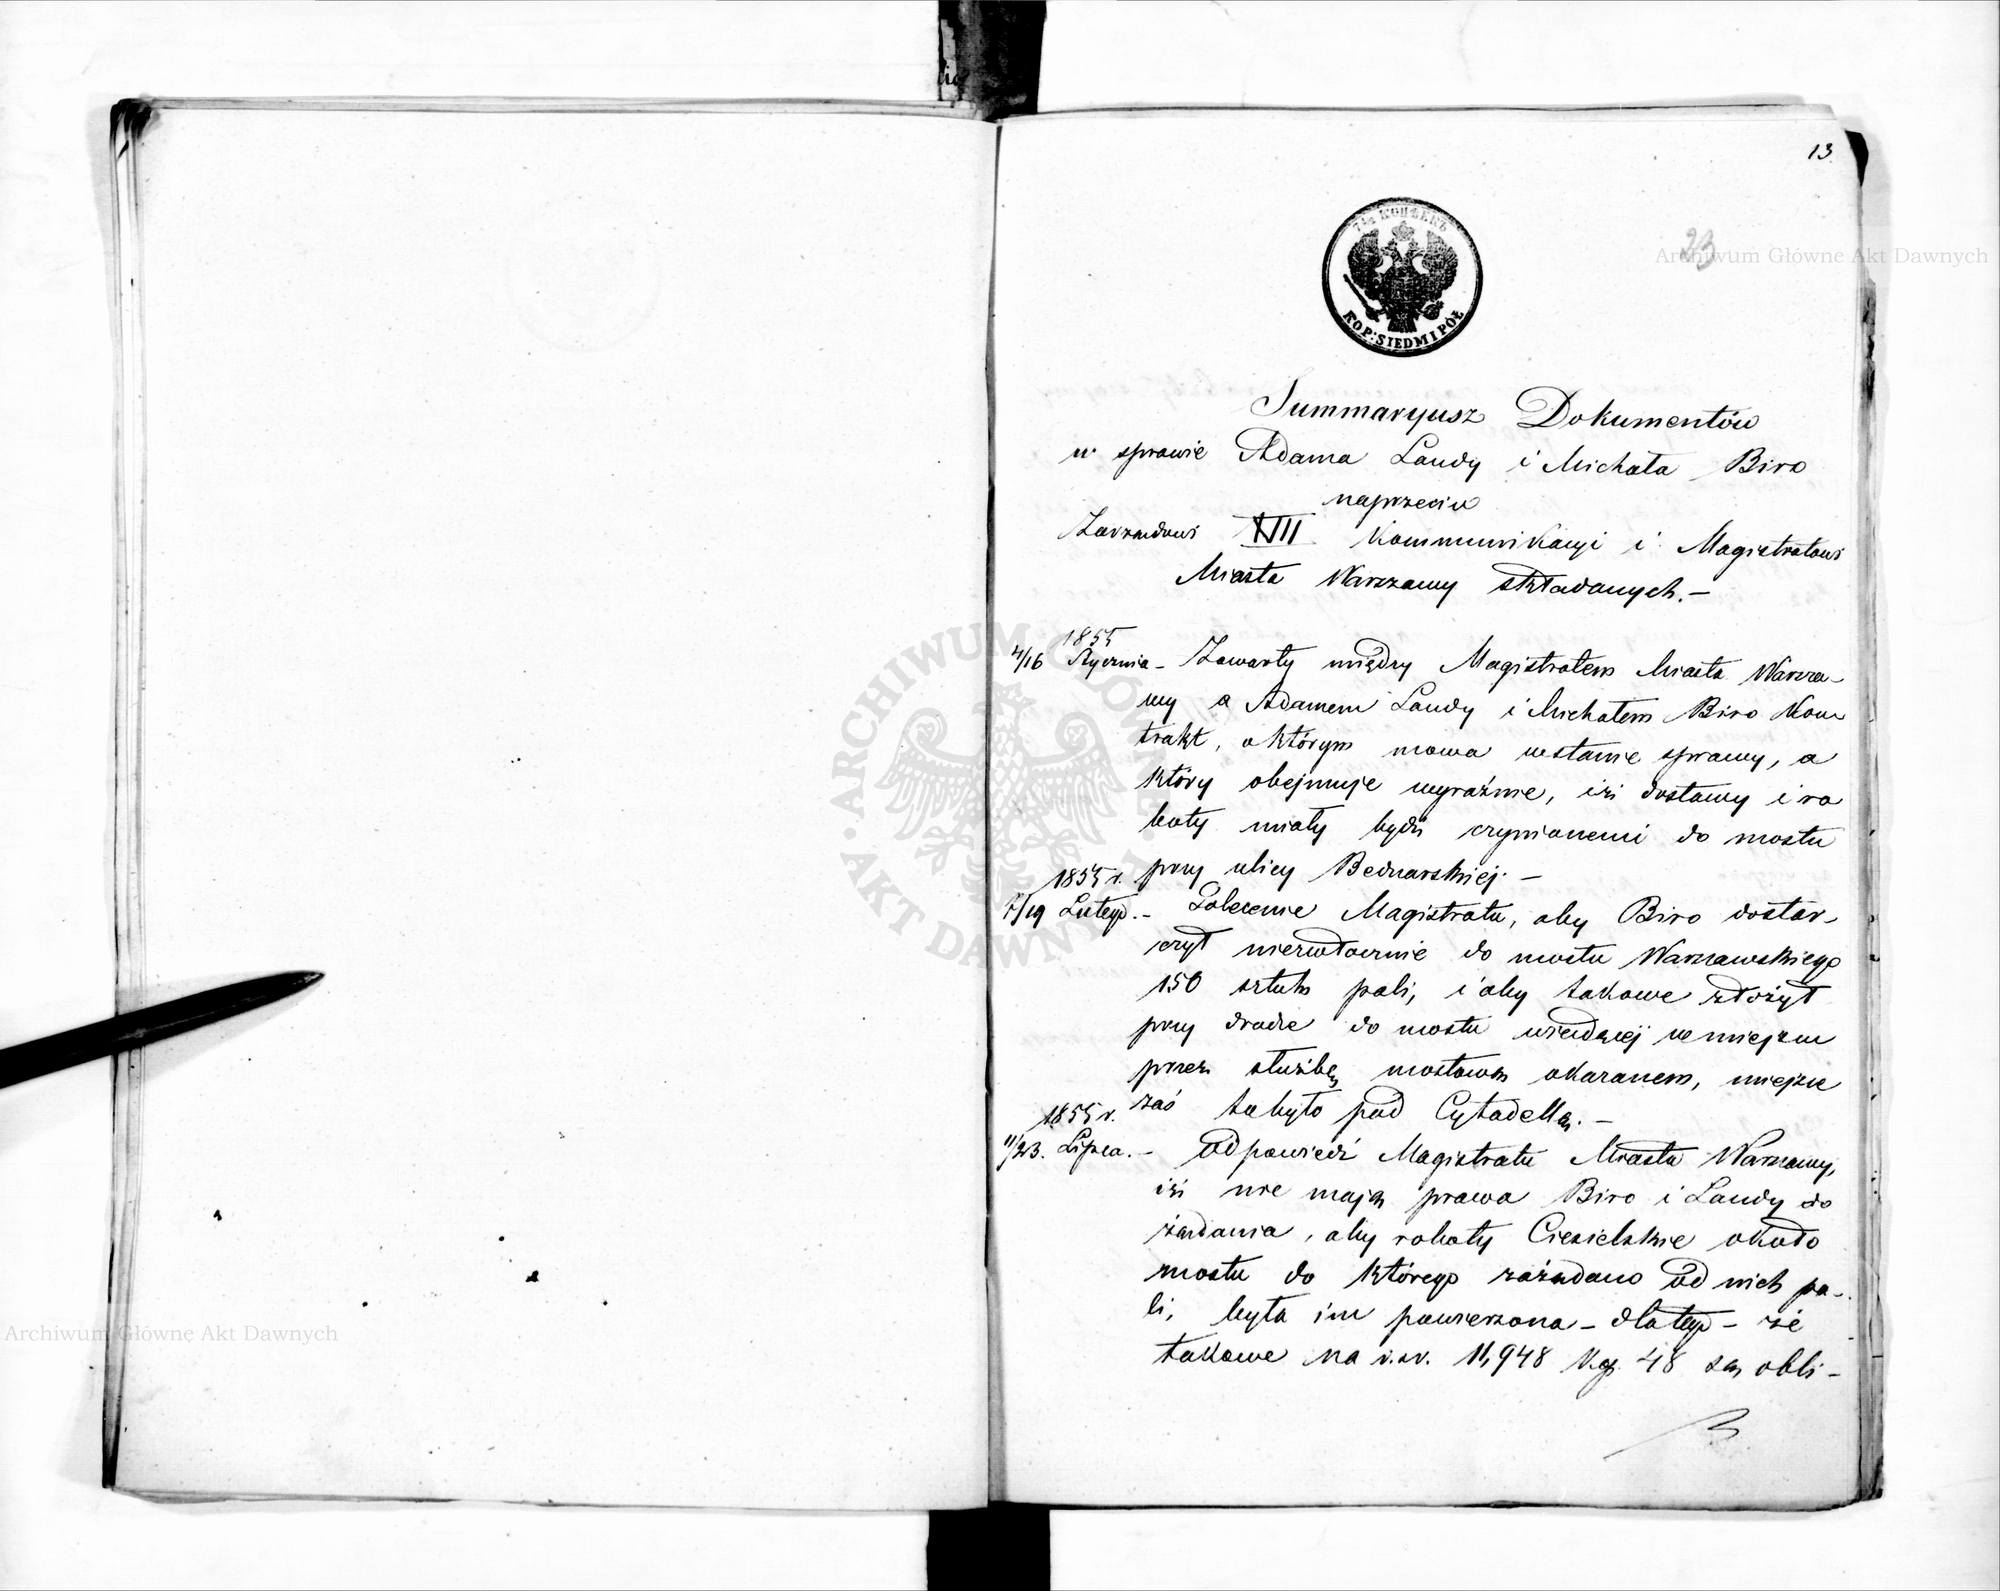 13
23
7½ КОПѢЕКЪ
KOP: SIEDM I PÓŁ
Summaryusz Dokumentów
w sprawie Adama Landy i Michała Biro
naprzeciw
Zarządowi XIII Kommunikacyi i Magistratowi
Miasta Warszawy składanych. –
1855
4/16 Stycznia – Zawarty między Magistratem Miasta Warsza–
wy a Adamem Landy i Michałem Biro Kon
trakt, o którym mowa wstanie sprawy, a
który obejmuje wyraźnie, iż dostawy i ro
boty miały bydź czynionemi do mostu
przy ulicy Bednarskiej. –
1855 r.
7/19 Lutego. – Polecenie Magistratu, aby Biro dostar–
czył niezwłocznie do mostu Warszawskiego
150 sztuk pali, i aby takowe złożył
przy drodze do mostu wiodącej w miejscu
przez służbę mostową okazanem, miejsce
zaś to było pod Cytadellą. –
1855 r.
11/23. Lipca. – Odpowiedź Magistratu Miasta Warszawy,
iż nie mają prawa Biro i Landy do
żądania, aby roboty Ciesielskie około
mostu do którego zażądano od nich pa–
li, była im powierzona – dla tego – że
takowe na r. sr. 11,948 kop. 48 są obli–
ARCHIWUM GŁÓWNE AKT DAWNYCH
Archiwum Główne Akt Dawnych
Archiwum Główne Akt Dawnych